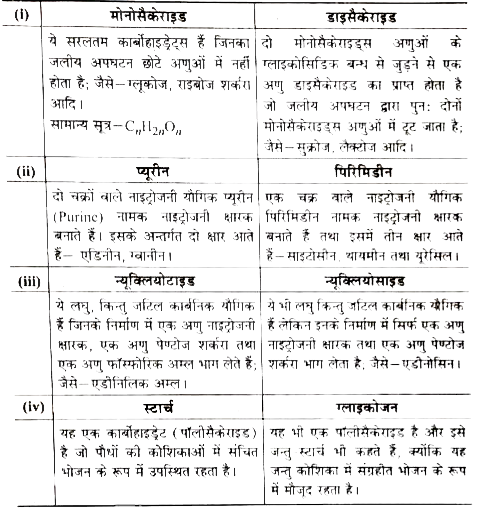 (i) मोनोसैकेराइड डाइसैकेराइड
ये सरलतम कार्बोहाइड्रेट्स हैं जिनका
जलीय अपघटन छोटे अणुओं में नहीं
होता है; जैसे–ग्लूकोज, राइबोज शर्करा
आदि।
सामान्य सूत्र–CₙH₂ₙOₙ
दो मोनोसैकेराइड्स अणुओं के
ग्लाइकोसिडिक बन्ध से जुड़ने से एक
अणु डाइसैकेराइड का प्राप्त होता है
जो जलीय अपघटन द्वारा पुनः दोनों
मोनोसैकेराइड्स अणुओं में टूट जाता है;
जैसे–सुक्रोज, लैक्टोज आदि।
(ii) प्यूरीन पिरिमिडीन
दो चक्रों वाले नाइट्रोजनी यौगिक प्यूरीन
(Purine) नामक नाइट्रोजनी क्षारक
बनाते हैं। इसके अन्तर्गत दो क्षार आते
हैं– एडिनीन, ग्वानीन।
एक चक्र वाले नाइट्रोजनी यौगिक
पिरिमिडीन नामक नाइट्रोजनी क्षारक
बनाते हैं तथा इसमें तीन क्षार आते
हैं–साइटोसीन, थायमीन तथा यूरेसिल।
(iii) न्यूक्लियोटाइड न्यूक्लियोसाइड
ये लघु, किन्तु जटिल कार्बनिक यौगिक
हैं जिनके निर्माण में एक अणु नाइट्रोजनी
क्षारक, एक अणु पेण्टोज शर्करा तथा
एक अणु फॉस्फोरिक अम्ल भाग लेते हैं;
जैसे–एडीनिलिक अम्ल।
ये भी लघु किन्तु जटिल कार्बनिक यौगिक
हैं लेकिन इनके निर्माण में सिर्फ एक अणु
नाइट्रोजनी क्षारक तथा एक अणु पेण्टोज
शर्करा भाग लेता है, जैसे–एडीनोसिन।
(iv) स्टार्च ग्लाइकोजन
यह एक कार्बोहाइड्रेट (पॉलीसैकेराइड)
है जो पौधों की कोशिकाओं में संचित
भोजन के रूप में उपस्थित रहता है।
यह भी एक पॉलीसैकेराइड है और इसे
जन्तु स्टार्च भी कहते हैं, क्योंकि यह
जन्तु कोशिका में संग्रहीत भोजन के रूप
में मौजूद रहता है।